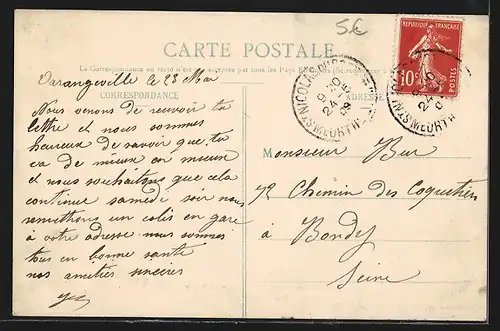 5€
CARTE POSTALE
La Correspondance au recto n'est pas acceptée par tous les Pays
CORRESPONDANCE
ADRESSE
REPUBLIQUE FRANÇAISE
10c
POSTES
ST NICOLAS DU PORT
MEURTHE
24
Varangeville le 23 Mai
Nous venons de recevoir ta
lettre et nous sommes
heureux de savoir que tu
va de mieux en mieux
et nous souhaitons que cela
continue samedi soir nous
remettrons un colis en gare
à votre adresse nous sommes
tous en bonne santé
nos amitiés sincères
Monsieur Bur
72 Chemin des Coquetiers
à Bondy
Seine